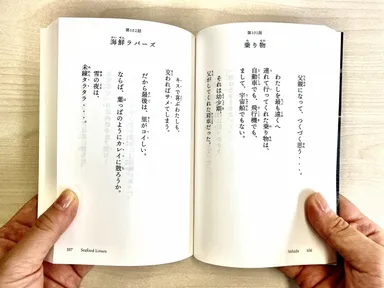 第101話
乗り物
父親になって、つくづく思う‥‥。
わたしを最も遠くへ
連れて行ってくれた乗り物は、
自動車でも、飛行機でも、
まして、宇宙船でもない。
それは幼少期、
父がしてくれた肩車だった。
Vehicle
106
第102話
海鮮ラバーズ
キスで喜ぶわたしも、
交わればサメてしまう。
だから最後は、里がコイしい。
ならば、葉っぱのようにカレイに散ろうか。
雪の夜は、
未練タラタラ‥‥‥。
107
Seafood Lovers